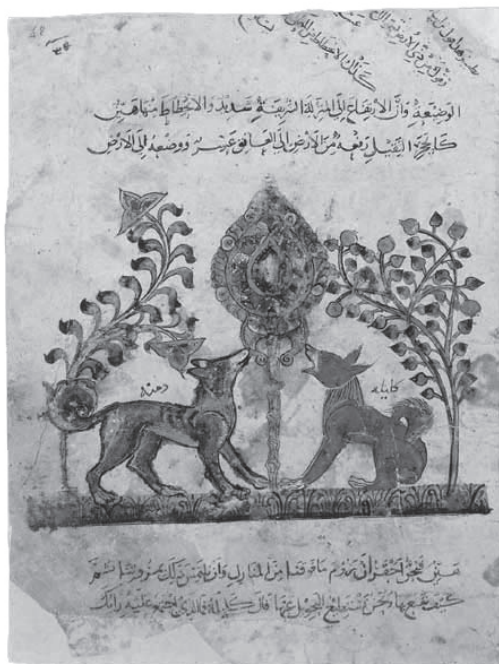 الوضيعة وان الارتفاع الى المنزلة الشريفة شديد والانحطاط منها هين
كالحجر الثقيل رفعه من الارض الى العاتق عسر ووضعه الى الارض
دمنه
كليله
هين فنحن احق ان نروم ما فوقنا من المنازل وان نلتمس ذلك بمروتنا ثم
كيف نقنع بها ونحن نستطيع التحول عنها قال كليلة فما الذي اجتمع عليه رايك